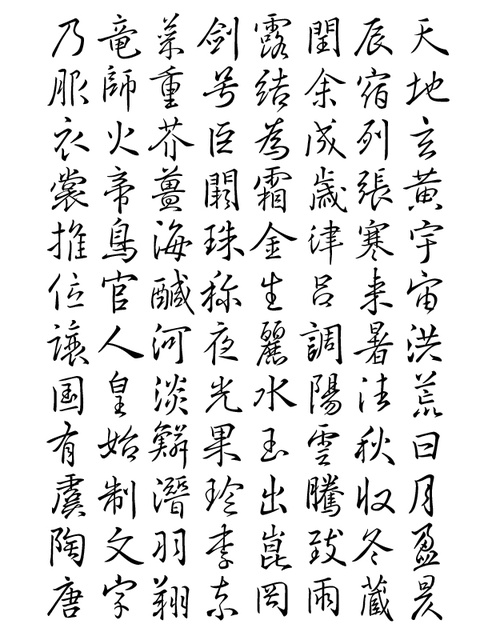 天地玄黄宇宙洪荒日月盈昃
辰宿列張寒来暑往秋収冬蔵
閏余成歳律呂調陽雲騰致雨
露結為霜金生麗水玉出崑岡
剣号巨闕珠称夜光果珍李柰
菜重芥薑海鹹河淡鱗潜羽翔
竜師火帝鳥官人皇始制文字
乃服衣裳推位譲国有虞陶唐